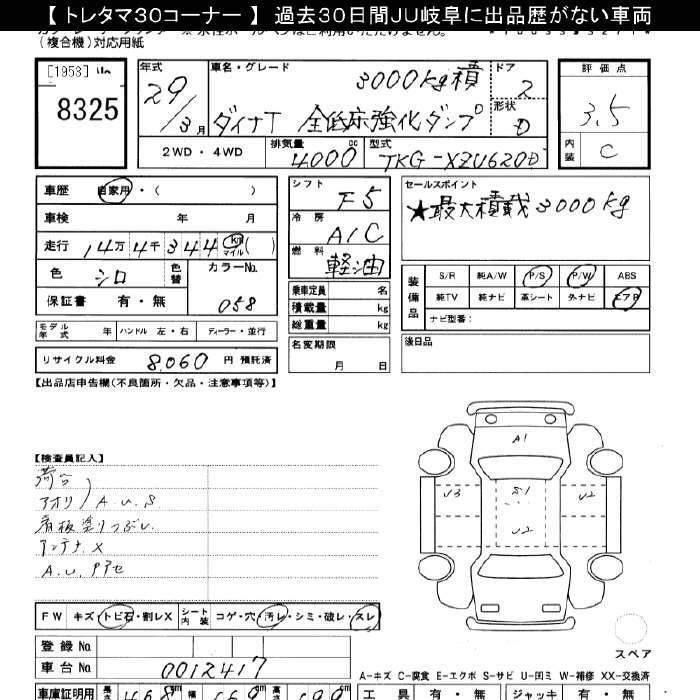 【 トレタマ３０コーナー 】 過去３０日間ＪＵ岐阜に出品歴がない車両
(複合機)対応用紙
[1953]
8325
年式 29/3月
車名・グレード 3000kg積
ダイナT 全低床強化ダンプ
ドア 2
形状 D
2WD ・ 4WD
排気量 4000 cc
型式 TKG-XZU620D
評価点 3.5
内装 C
車歴 自家用・( )
車検 年 月
走行 14万4千344 km マイル ( )
色 シロ 色替
カラーNo. 058
保証書 有・無
モデル年式 年 ハンドル 左・右 ディーラー・並行
リサイクル料金 8,060 円 預託済
シフト F5
冷房 A/C
燃料 軽油
乗車定員 名
積載量 kg
総重量 kg
名変期限 月 日
セールスポイント
★最大積載3000kg
装備品 S/R 純A/W P/S P/W ABS
純TV 純ナビ 革シート 外ナビ エアB
ナビ型番:
後日品
【出品店申告欄(不良箇所・欠品・注意事項等)】
【検査員記入】
荷台
アオリ) A.U.S
看板塗りつぶし
アンテナX
A.U.Pアセ
A1
U3 S1 U2
U2
スペア
FW キズ・トビ石・割レX シート内装 コゲ・穴・汚レ・シミ・破レ・スレ
登録No.
車台No. 0012417
A-キズ C-腐食 E-エクボ S-サビ U-凹ミ W-補修 XX-交換済
車庫証明用 長さ 468 cm 幅 169 cm 高さ 199 cm
工具 有・無 ジャッキ 有・無